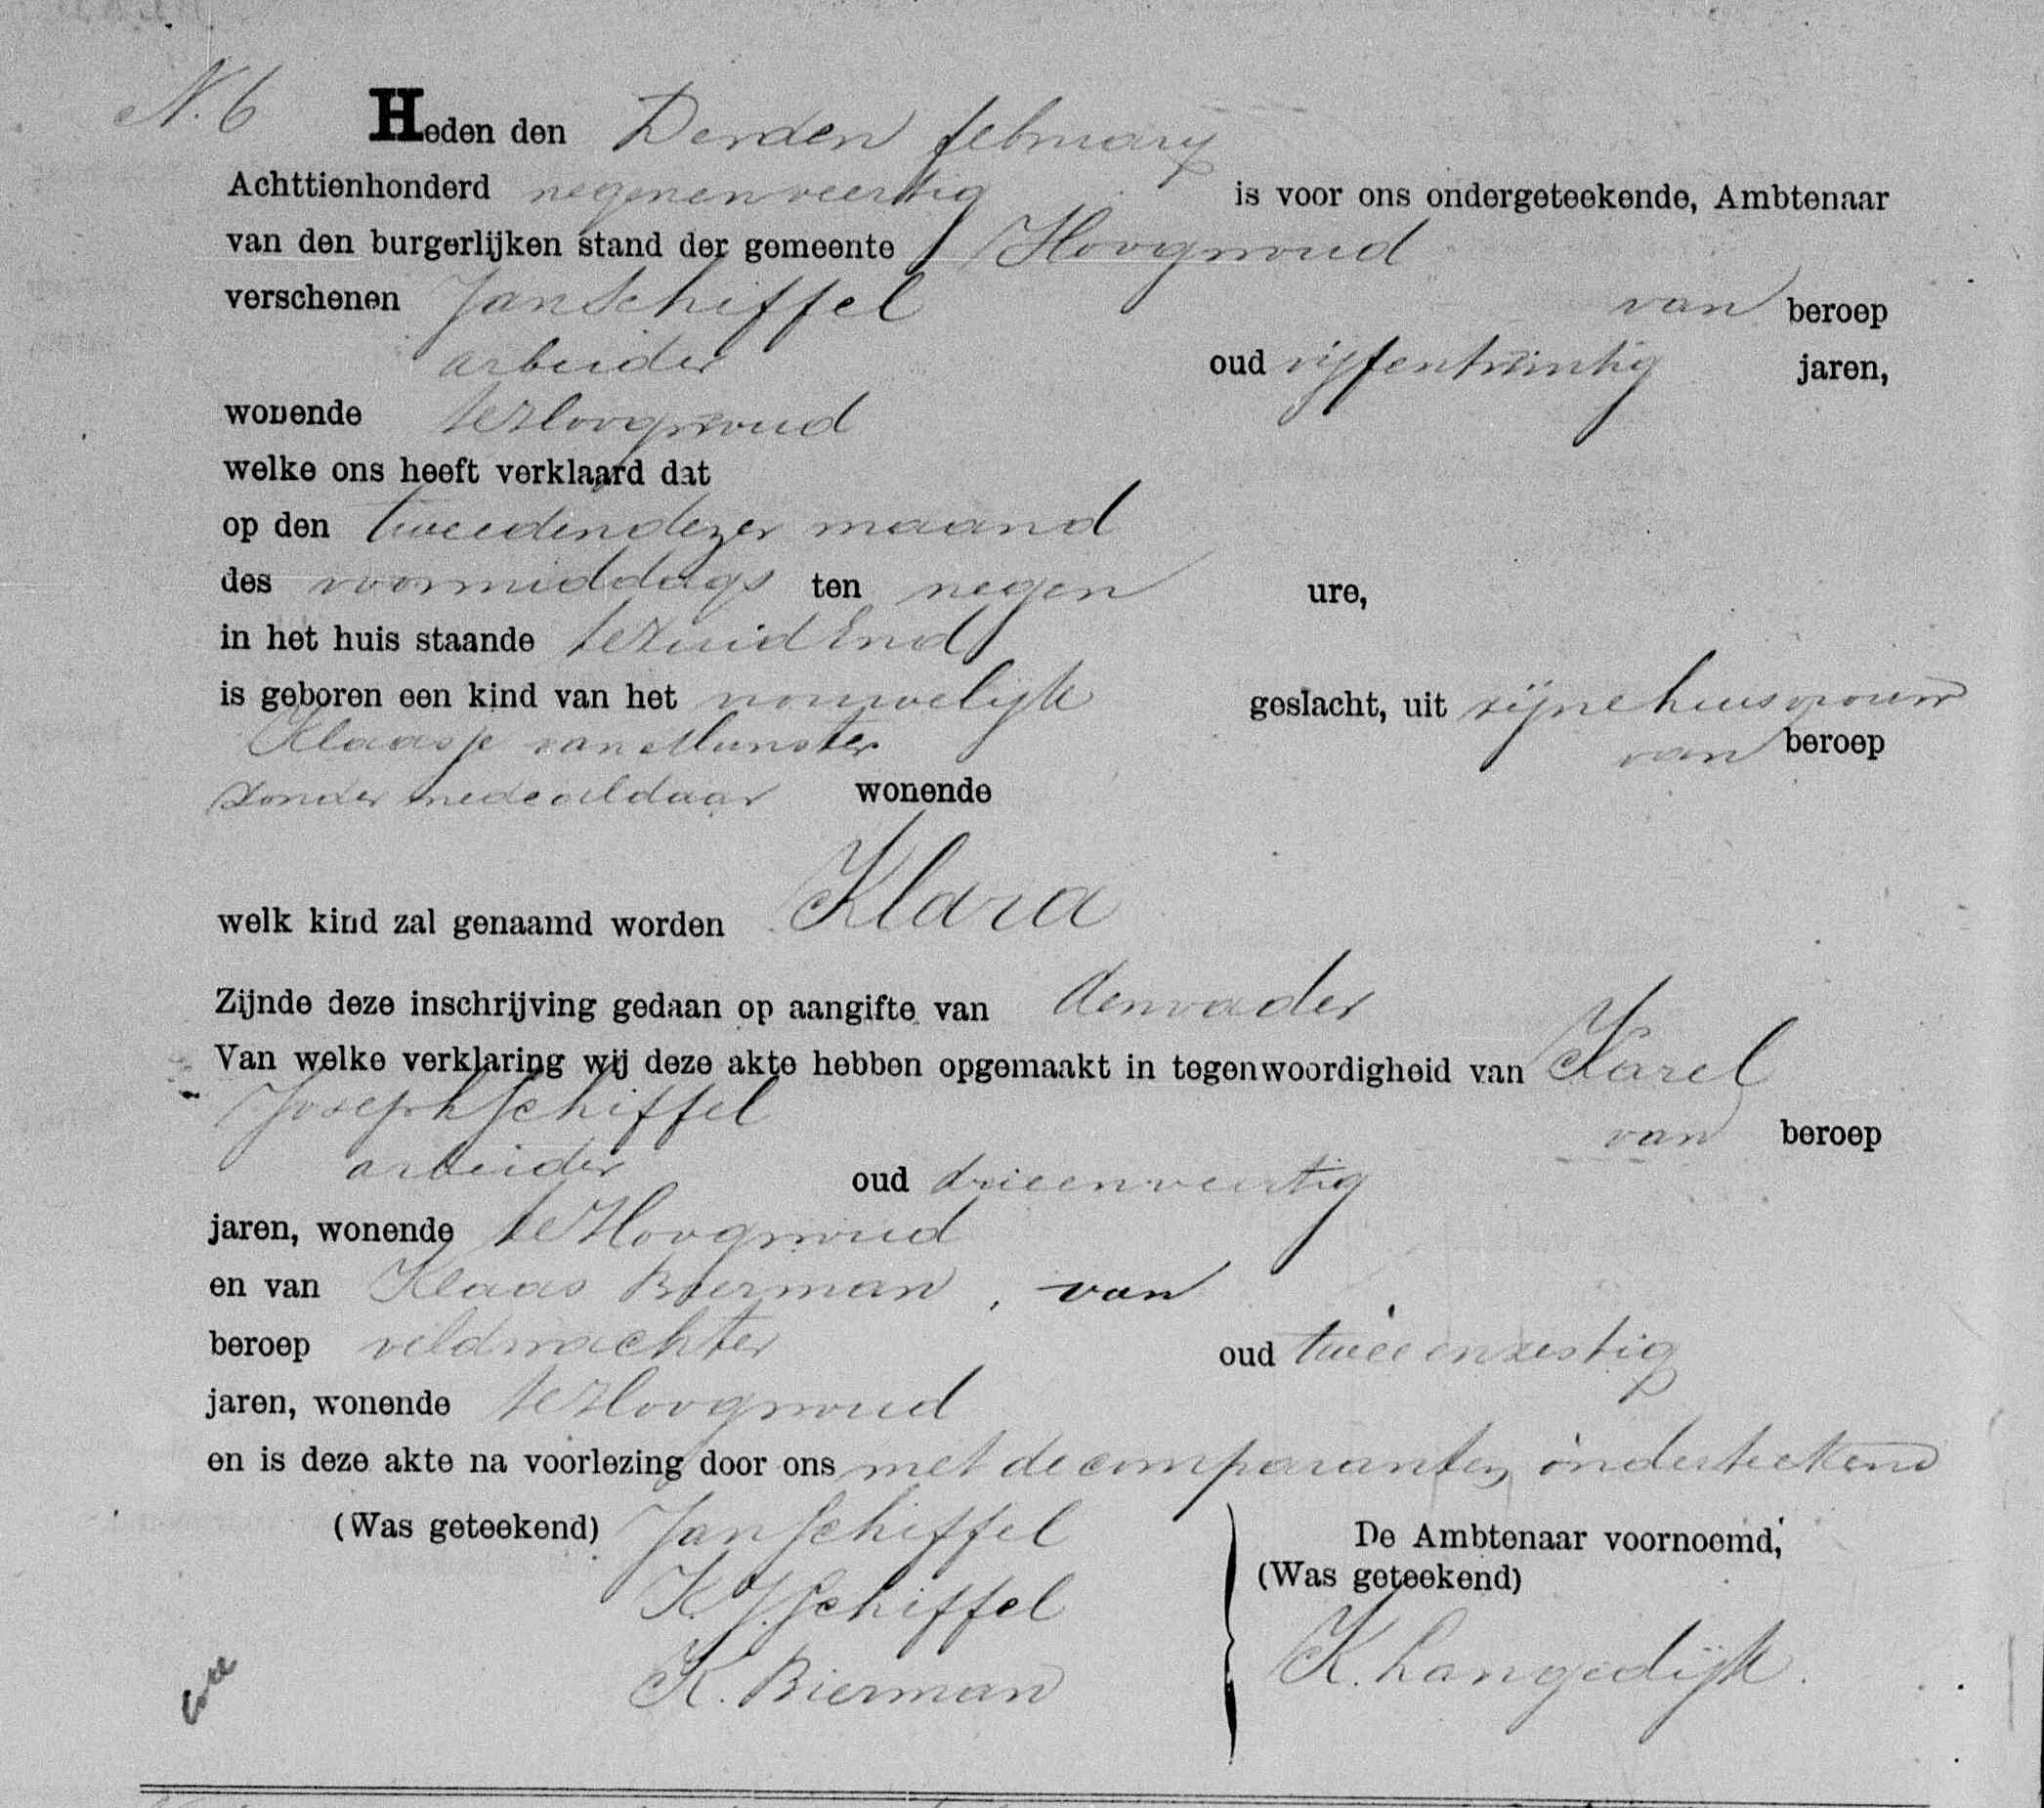 N. 6 Heden den Derden february
Achttienhonderd negenenveertig is voor ons ondergeteekende, Ambtenaar
van den burgerlijken stand der gemeente Hoogwoud
verschenen Jan Schiffel van beroep
arbeider oud vijfentwintig jaren,
wonende te Hoogwoud
welke ons heeft verklaard dat
op den tweeden dezer maand
des voormiddags ten negen ure,
in het huis staande te Zuid End
is geboren een kind van het vrouwelijk geslacht, uit zijne huisvrouw
Klaasje van Munster van beroep
zonder mede aldaar wonende
welk kind zal genaamd worden Klara
Zijnde deze inschrijving gedaan op aangifte van den vader
Van welke verklaring wij deze akte hebben opgemaakt in tegenwoordigheid van Karel
Joseph Schiffel van beroep
arbeider oud drieenveertig
jaren, wonende te Hoogwoud
en van Klaas Bierman, van
beroep veldwachter oud tweeenzestig
jaren, wonende te Hoogwoud
en is deze akte na voorlezing door ons met de comparanten onderteekend
(Was geteekend) Jan Schiffel
K. J. Schiffel
K. Bierman
De Ambtenaar voornoemd,
(Was geteekend)
K. Langedijk.